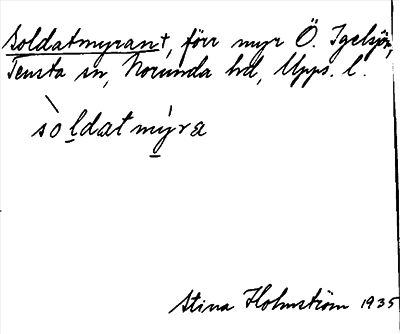 Soldatmyran†, förr myr Ö. Igelsjön,
Tensta sn, Norunda hd, Upps. l.
sòldatmýra
Stina Holmström 1935